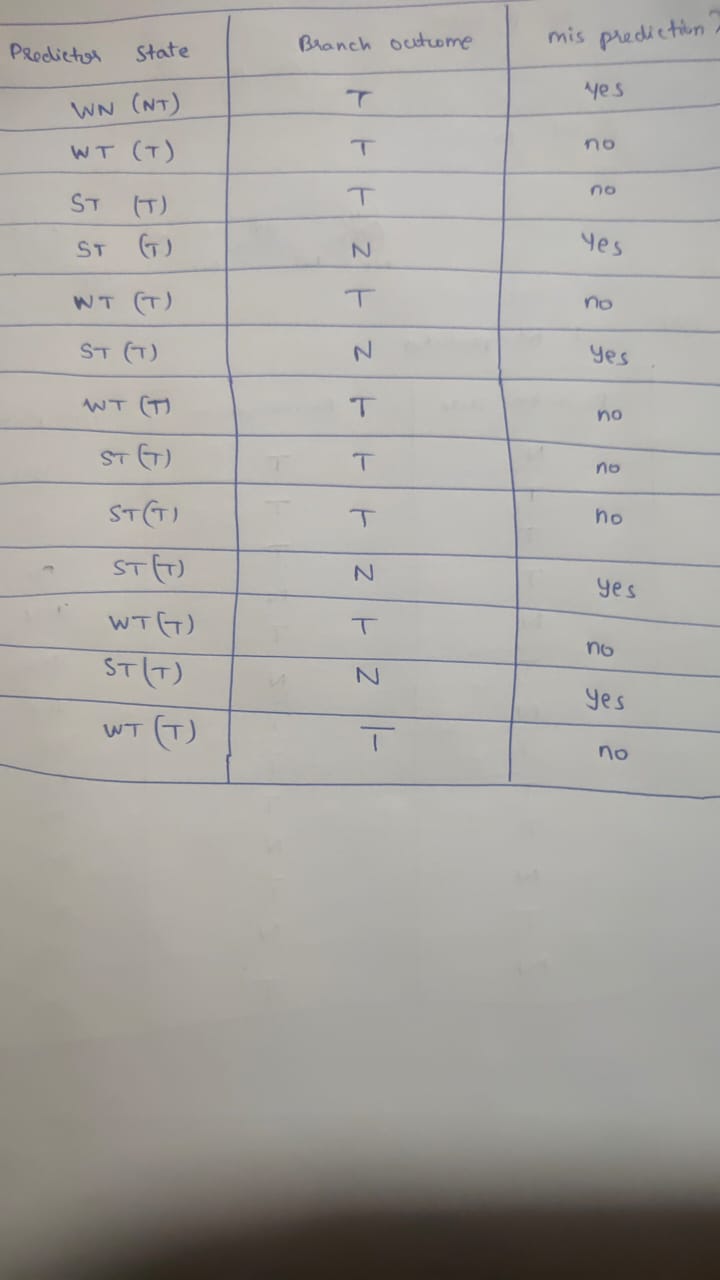 Predictor State Branch outcome mis prediction?
WN (NT) T yes
WT (T) T no
ST (T) T no
ST (T) N Yes
WT (T) T no
ST (T) N yes
WT (T) T no
ST (T) T no
ST (T) T no
ST (T) N yes
WT (T) T no
ST (T) N yes
WT (T) T no